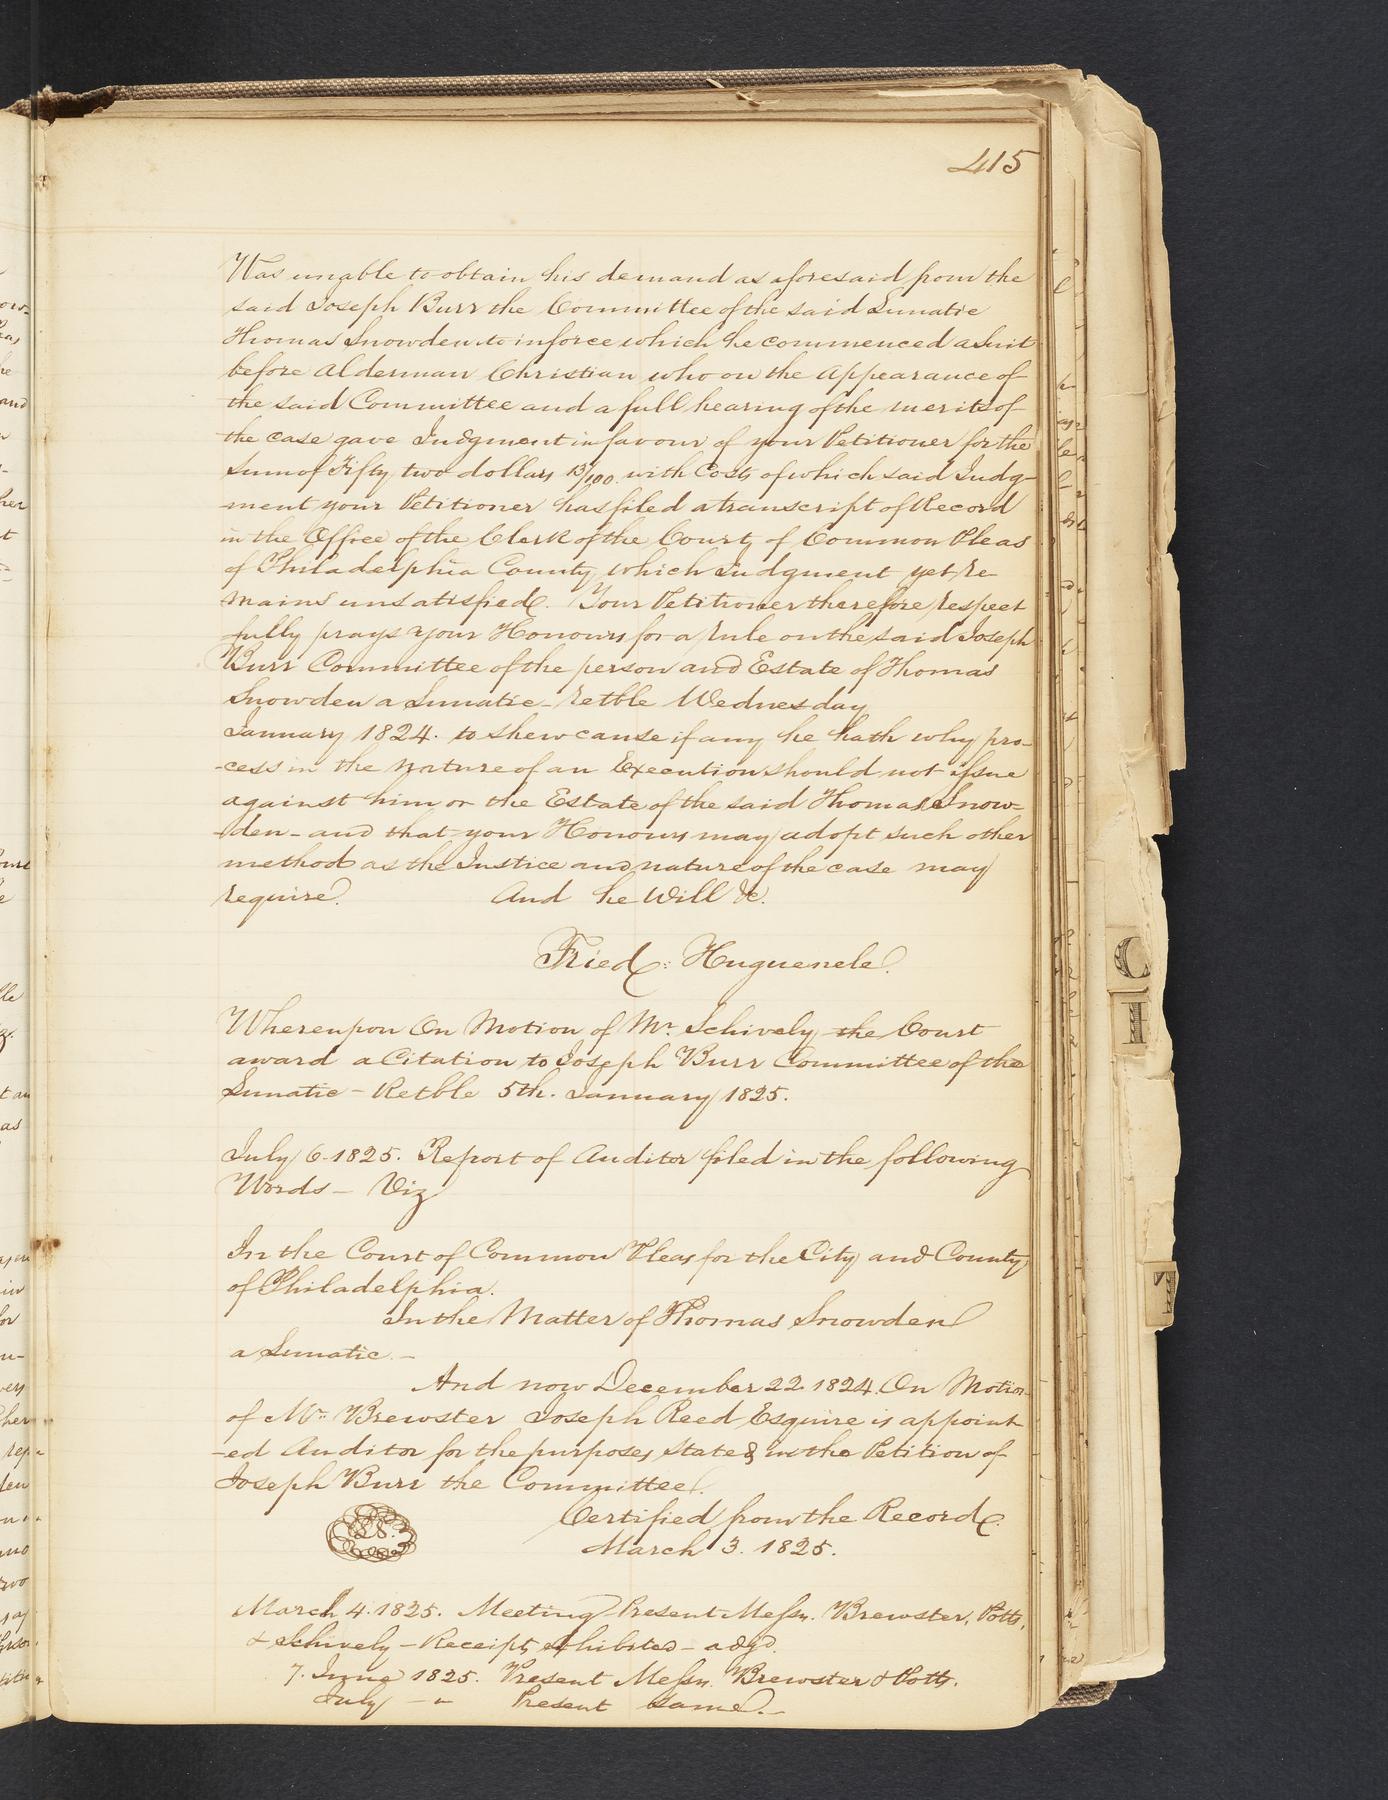 415
Was unable to obtain his demand as aforesaid from the
said Joseph Burr the Committee of the said Lunatic
Thomas Snowden to inforce which he commenced a Suit
before Alderman Christian who on the appearance of
the said Committee and a full hearing of the merits of
the case gave Judgment in favour of your Petitioner for the
Sum of Fifty two dollars 13/100 with Costs of which said Judg-
ment your Petitioner has filed a transcript of Record
in the Office of the Clerk of the Court of Common Pleas
of Philadelphia County which Judgment yet re-
mains unsatisfied. Your Petitioner therefore respect
fully prays your Honours for a rule on the said Joseph
Burr Committee of the person and Estate of Thomas
Snowden a Lunatic - retble Wednesday
January 1824. to shew cause if any he hath why pro-
-cess in the nature of an Execution should not issue
against him or the Estate of the said Thomas Snow-
-den - and that your Honours may adopt such other
method as the Justice and nature of the case may
require. And he Will &c.
Fried: Huguenele.
Whereupon On Motion of Mr. Schively the Court
award a Citation to Joseph Burr Committee of the
Lunatic - Retble 5th. January 1825.
July 6 1825. Report of Auditor filed in the following
Words - Viz
In the Court of Common Pleas for the City and County
of Philadelphia.
In the Matter of Thomas Snowden
a Lunatic. -
And now December 22 1824. On Motion
of Mr. Brewster Joseph Reed Esquire is appoint
-ed Auditor for the purposes stated in the Petition of
Joseph Burr the Committee.
Certified from the Record.
March 3. 1825.
March 4. 1825. Meeting Present Messrs. Brewster, Potts,
& Schively - Receipts exhibited - adjd.
7. June 1825. Present Messrs. Brewster & Potts.
July - " Present same. -